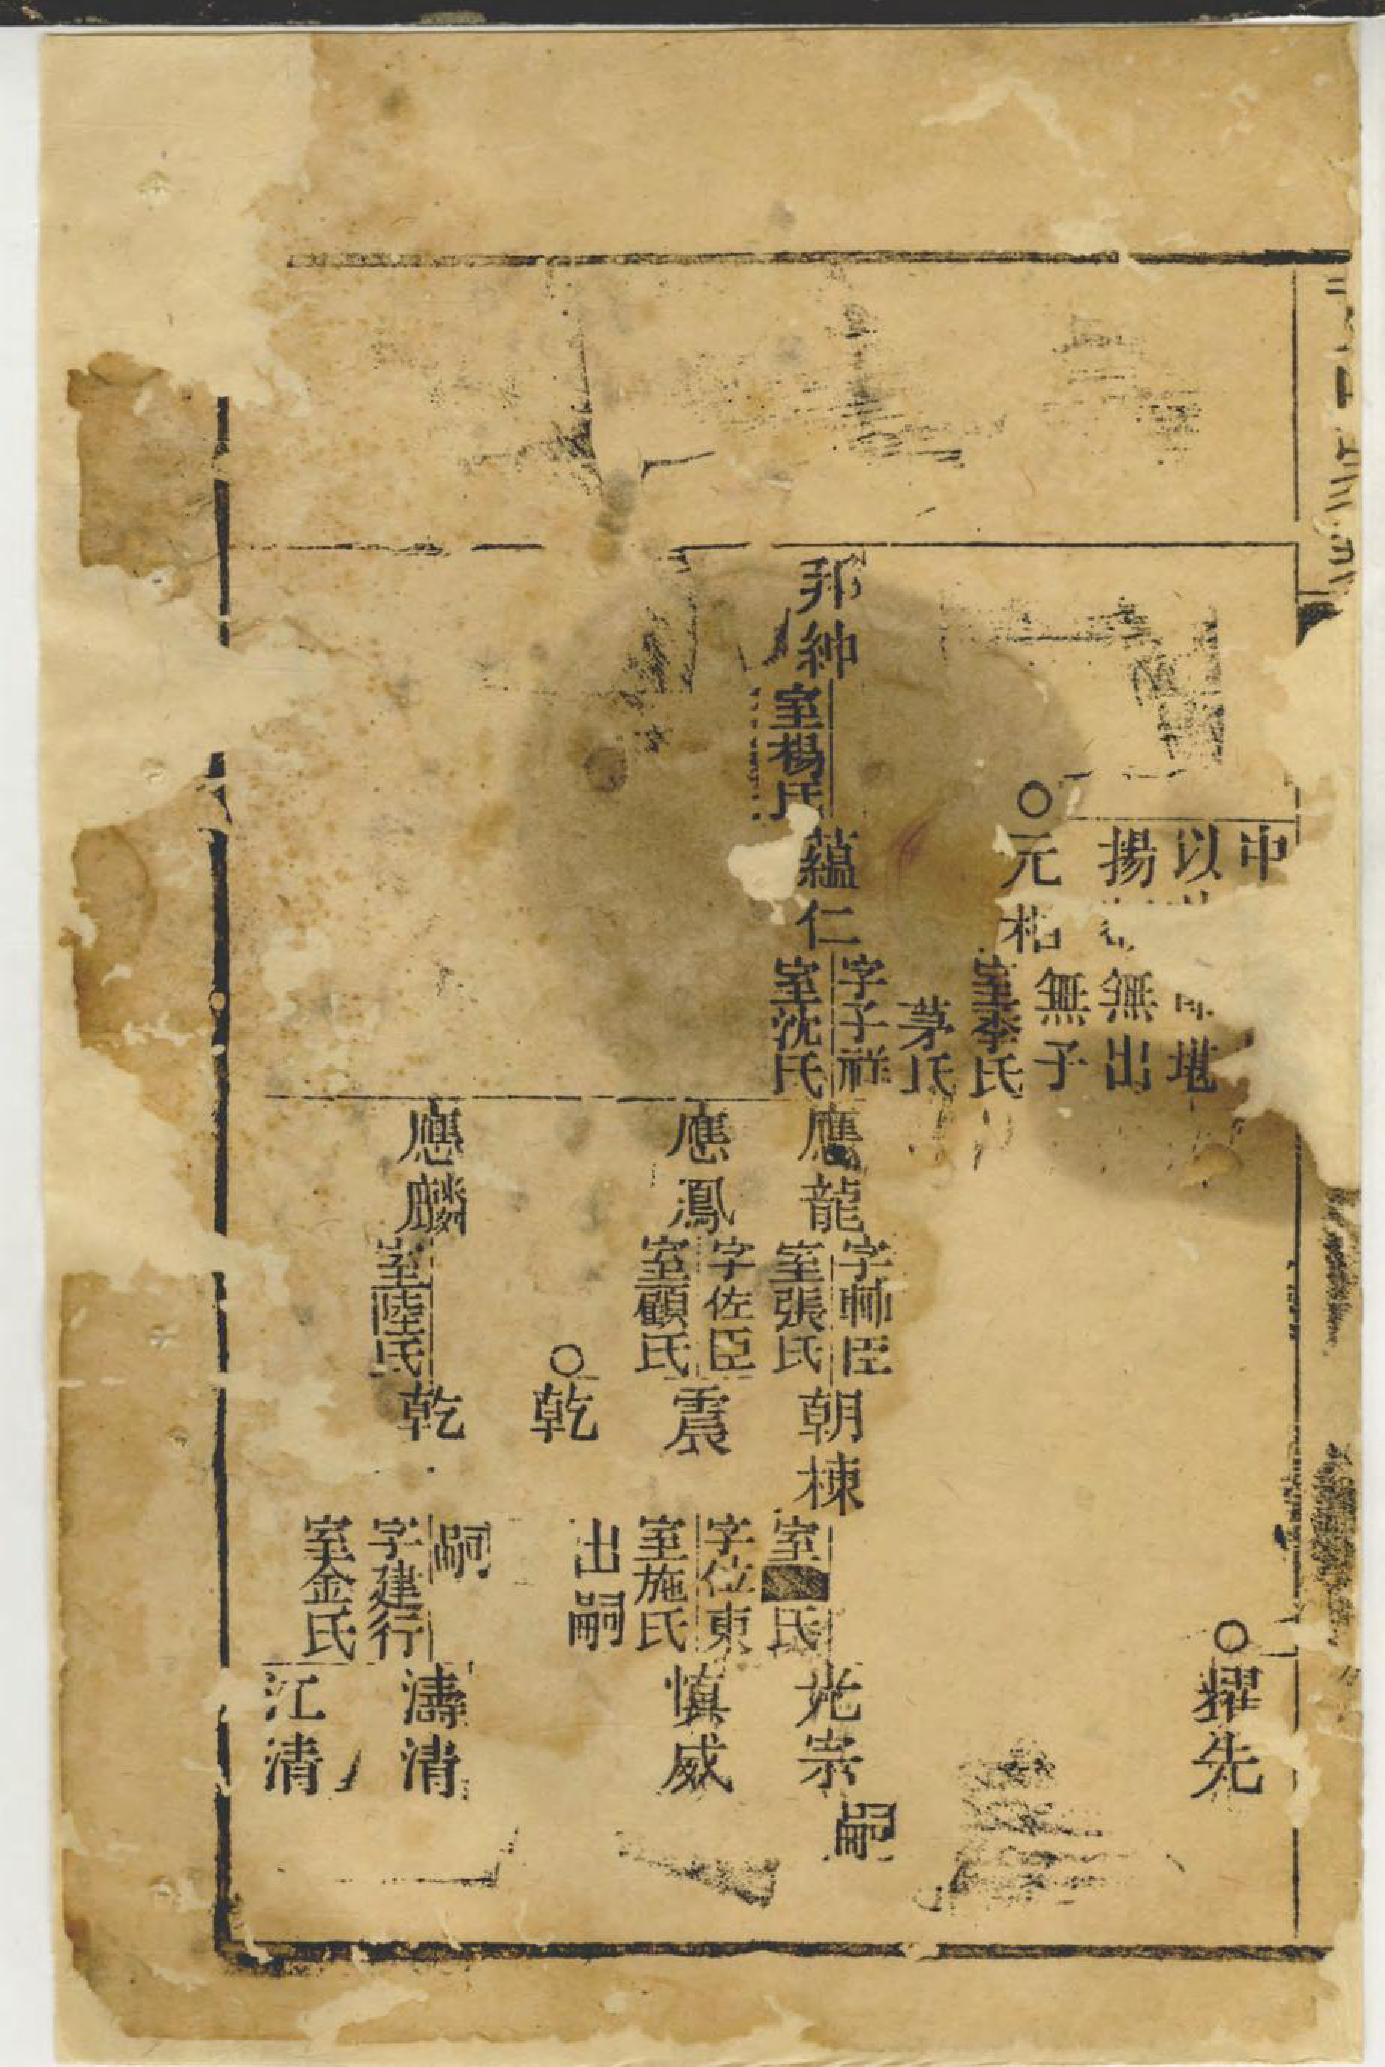 中
以
揚
無出
元相
無子
室李氏
茅氏
耀先
邦紳
室楊氏
蘊仁
字子祥
室沈氏
應龍
字輔臣
室張氏
朝棟
室
氏
光宗
嗣
應鳳
字佐臣
室顧氏
震
字位東
室施氏
慎威
乾
出嗣
應麟
室陸氏
乾
嗣
字建行
室金氏
濤清
江清